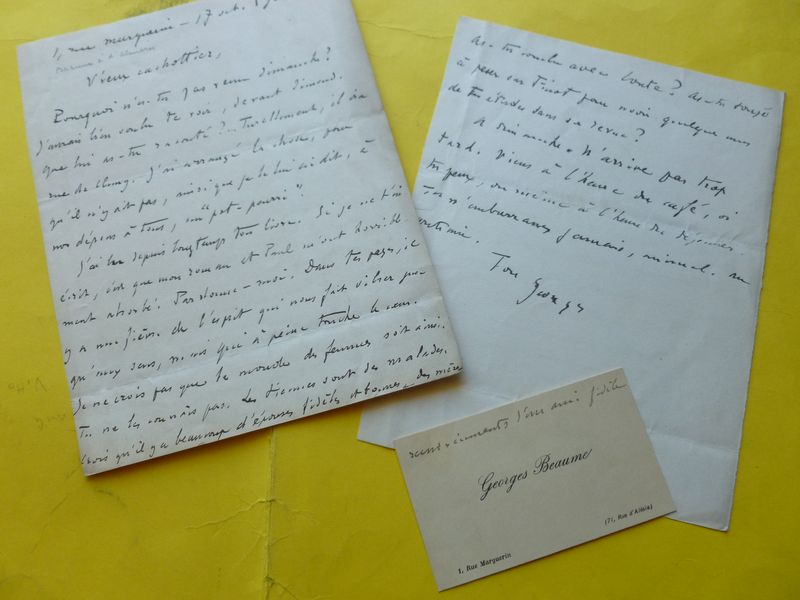 1, rue Marguerin – 17 oct.
Vieux cachottier,
Pourquoi n'es-tu pas venu dimanche?
J'aurais bien voulu te voir, devant
que lui as-tu raconté? Naturellement, il ira
rue de Cluny. J'ai arrangé la chose, pour
qu'il n'y ait pas, ainsi que je le lui ai dit, à
nos dépens à tous, un "pot-pourri".
J'ai lu depuis longtemps ton livre. Si je ne t'ai
écrit, c'est que mon roman et Paul m'ont horrible-
ment absorbé. Pardonne-moi. Dans tes pages, il
y a une fièvre de l'esprit qui nous fait vibrer
sens, mais qui à peine touche le cœur.
Je ne crois pas que le monde des femmes soit ainsi.
Tu ne les connais pas. Les tiennes sont des malades.
Crois qu'il y a beaucoup d'épouses fidèles et bonnes, des mère
as-tu voulu avec Conte? As-tu songé
à peser sur Tinot pour avoir quelques unes
de tes études dans sa revue?
A dimanche. N'arrive pas trop
tard. Viens à l'heure du café, si
tu peux, ou même à l'heure du déjeuner.
Tu n'embarrasses jamais, animal. Au
contraire.
Ton Georges
remerciements d'un ami fidèle
Georges Beaume
(71, Rue d'Alésia)
1, Rue Marguerin